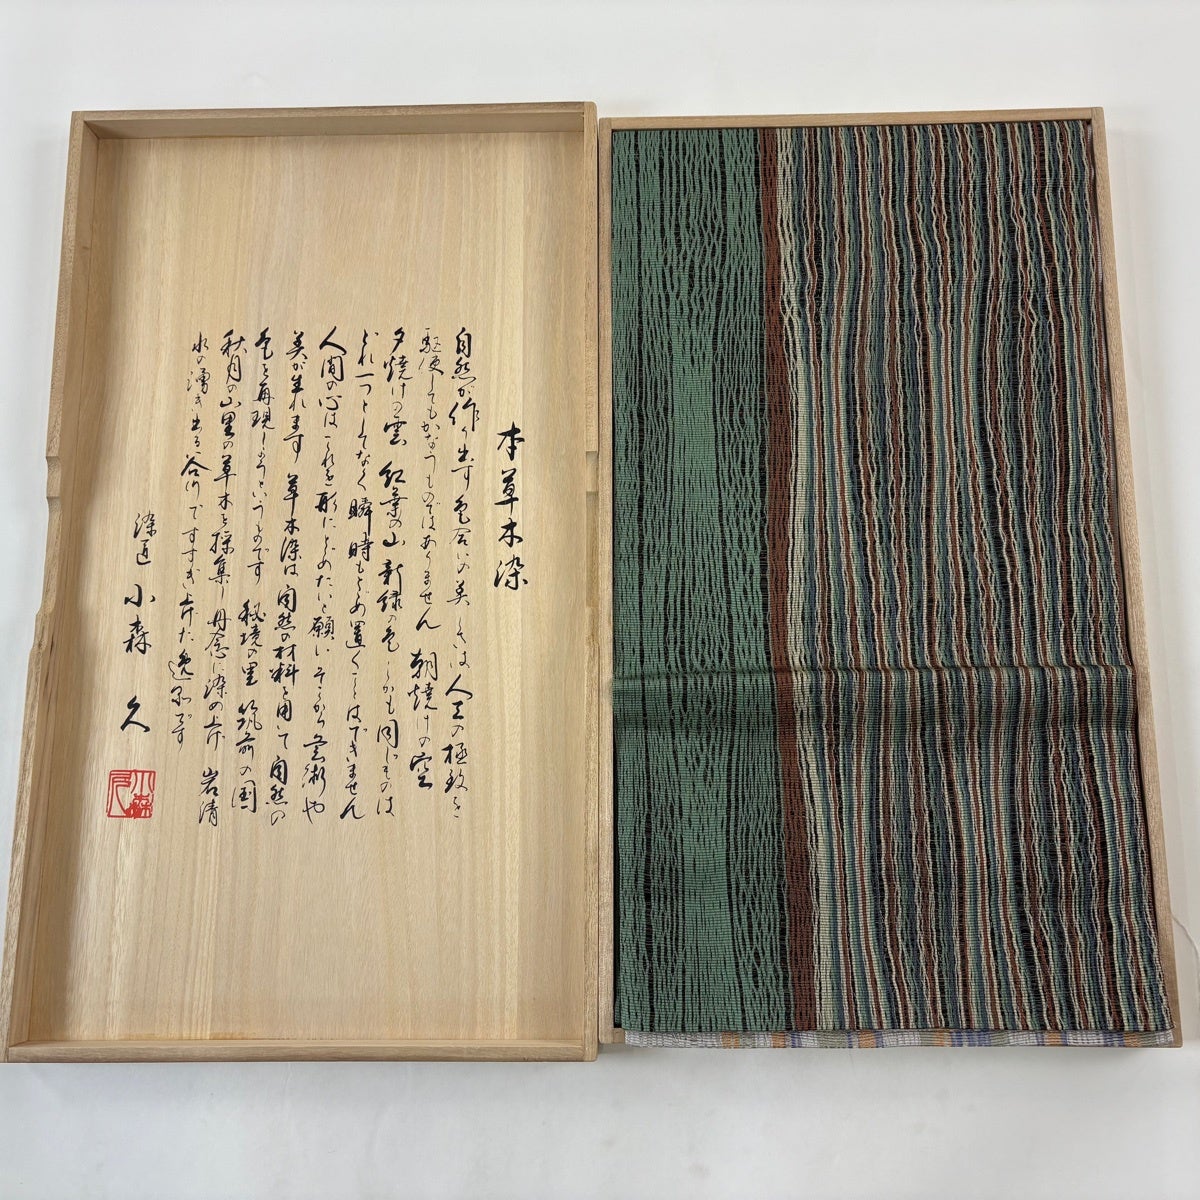 本草木染
自然が作り出す色合いの美しさは 人工の極致を
駆使してもかなうものではありません 朝焼けの空
夕焼けの雲 紅葉の山 新緑の色 しかも同じものは
どれ一つとしてなく 瞬時もとどめ置くことはできません
人間の心は これを形にとどめたいと願い そこから芸術や
美が生れます 草木染は 自然の材料を用いて 自然の
色を再現しようというものです 秘境の里 筑前の国
秋月の山里の草木を採集し 丹念に染め上げ 岩清
水の湧き出る谷川ですすぎ上げた逸品です
染匠 小森 久
小森久